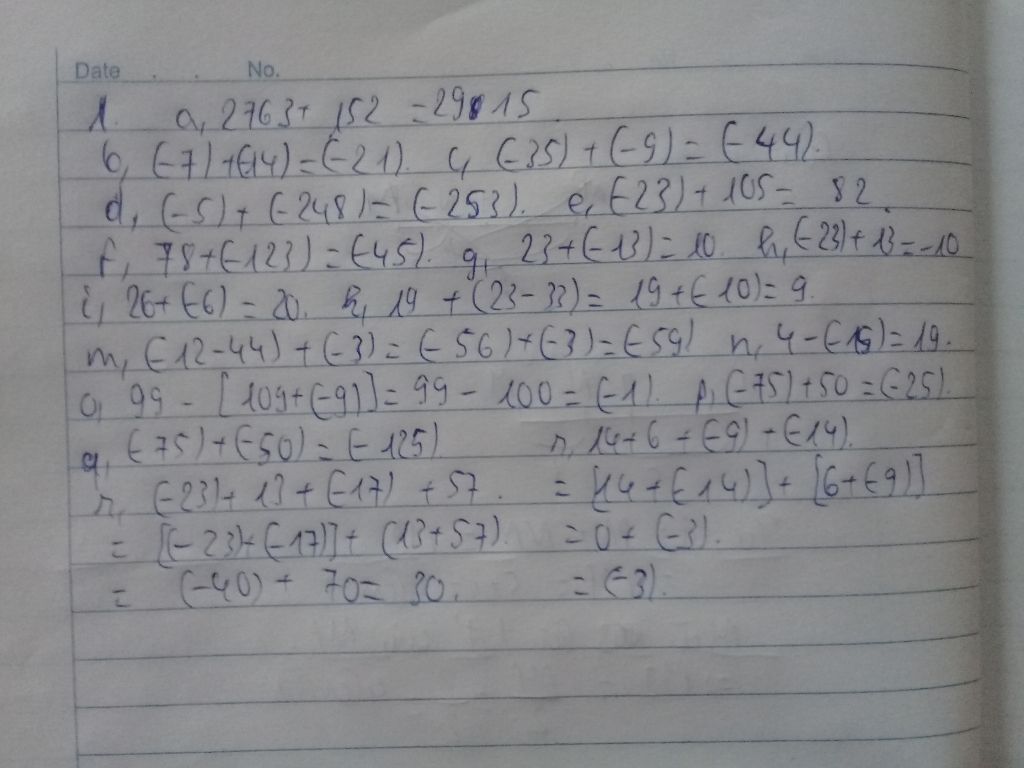 Date . . No.
1. a, 2763 + 152 = 2915
b, (-7) + (-14) = (-21). c, (-35) + (-9) = (-44).
d, (-5) + (-248) = (-253). e, (-23) + 105 = 82.
f, 78 + (-123) = (-45). g, 23 + (-13) = 10. h, (-23) + 13 = -10
i, 26 + (-6) = 20. k, 19 + (23 - 33) = 19 + (-10) = 9.
m, (-12 - 44) + (-3) = (-56) + (-3) = (-59) n, 4 - (-15) = 19.
o, 99 - [109 + (-9)] = 99 - 100 = (-1). p, (-75) + 50 = (-25).
q, (-75) + (-50) = (-125) r, 14 + 6 + (-9) + (-14).
r, (-23) + 13 + (-17) + 57. = [14 + (-14)] + [6 + (-9)]
= [(-23) + (-17)] + (13 + 57). = 0 + (-3).
= (-40) + 70 = 30. = (-3).